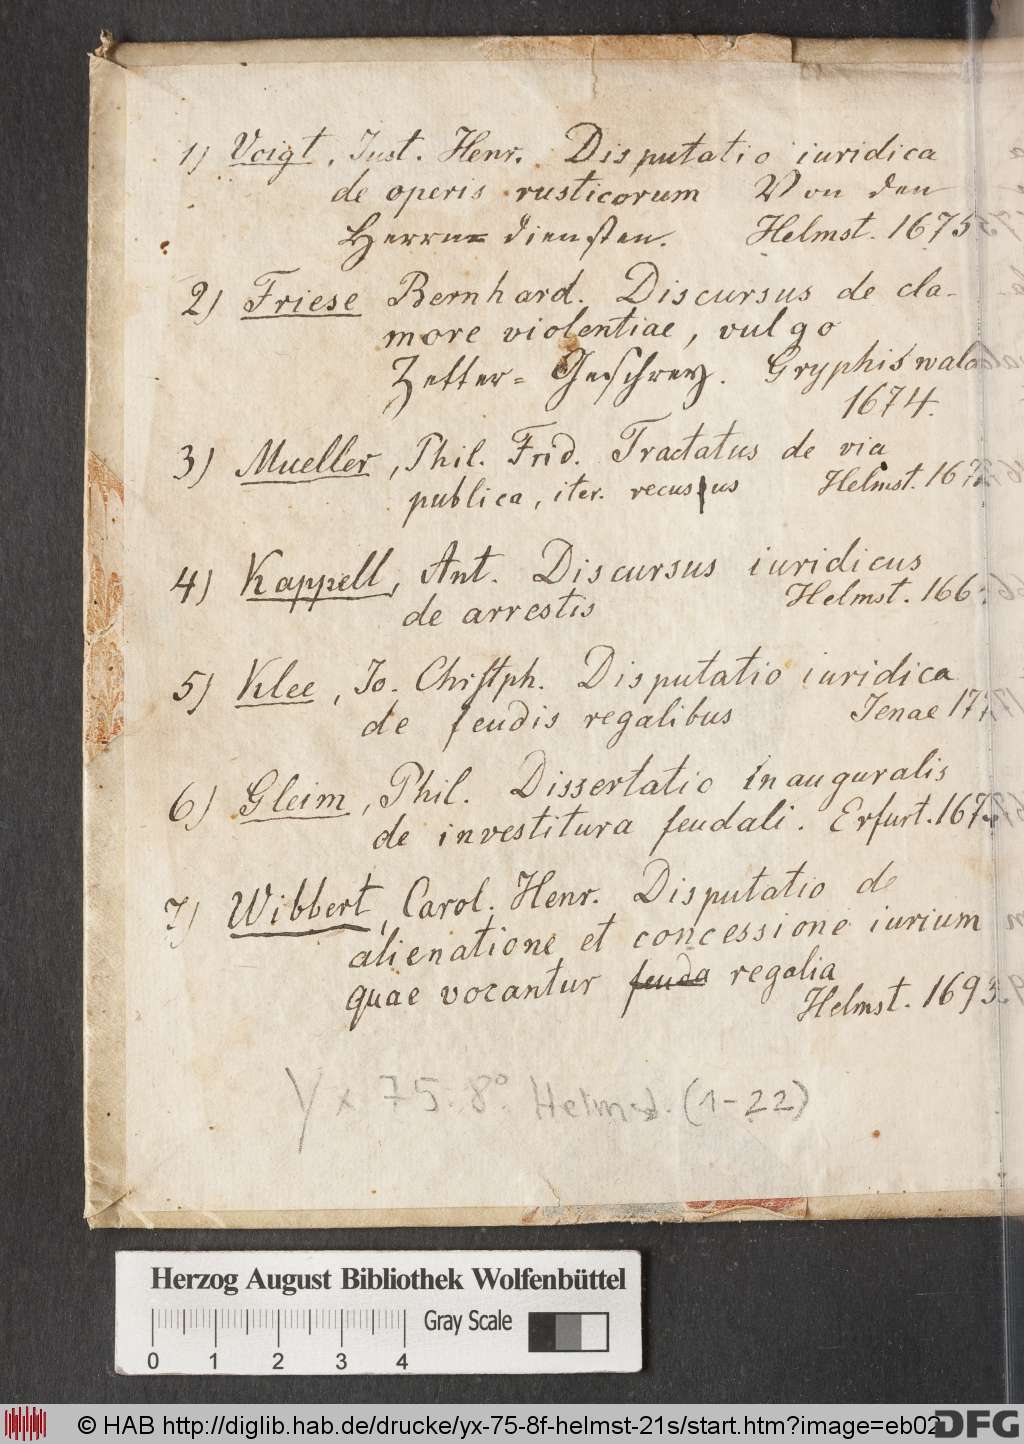 1) Voigt, Just. Henr. Disputatio iuridica
de operis rusticorum Von den
Herrn= diensten. Helmst. 1675
2) Friese Bernhard. Discursus de cla-
more violentiae, vulgo
Zetter= Geschrey. Gryphiswald
1674.
3) Mueller, Phil. Frid. Tractatus de via
publica, iter. recusus Helmst. 167
4) Kappell, Ant. Discursus iuridicus
de arrestis Helmst. 166
5) Klee, Jo. Christph. Disputatio iuridica
de feudis regalibus Jenae 17
6) Gleim, Phil. Dissertatio inauguralis
de investitura feudali. Erfurt. 167
7) Wibbert, Carol. Henr. Disputatio de
alienatione et concessione iurium
quae vocantur feuda regalia
Helmst. 1693
Yx 75. 8° Helmst. (1-22)
Herzog August Bibliothek Wolfenbüttel
Gray Scale
0 1 2 3 4
© HAB http://diglib.hab.de/drucke/yx-75-8f-helmst-21s/start.htm?image=eb02
DFG